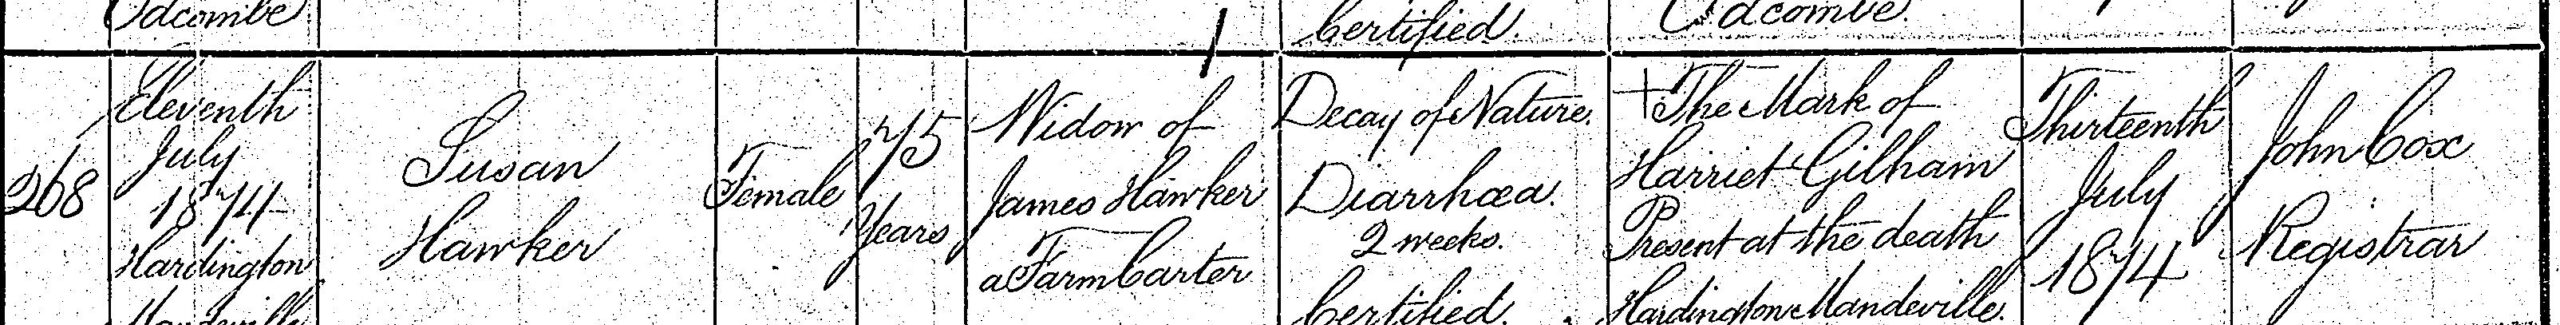 Odcombe
Certified.
Odcombe.
268
Eleventh
July
1874
Hardington
Mandeville
Susan
Hawker
Female
75
Years
Widow of
James Hawker
a Farm Carter
Decay of Nature.
Diarrhœa.
2 weeks.
Certified.
+ The Mark of
Harriet Gilham
Present at the death
Hardington Mandeville.
Thirteenth
July
1874
John Cox
Registrar